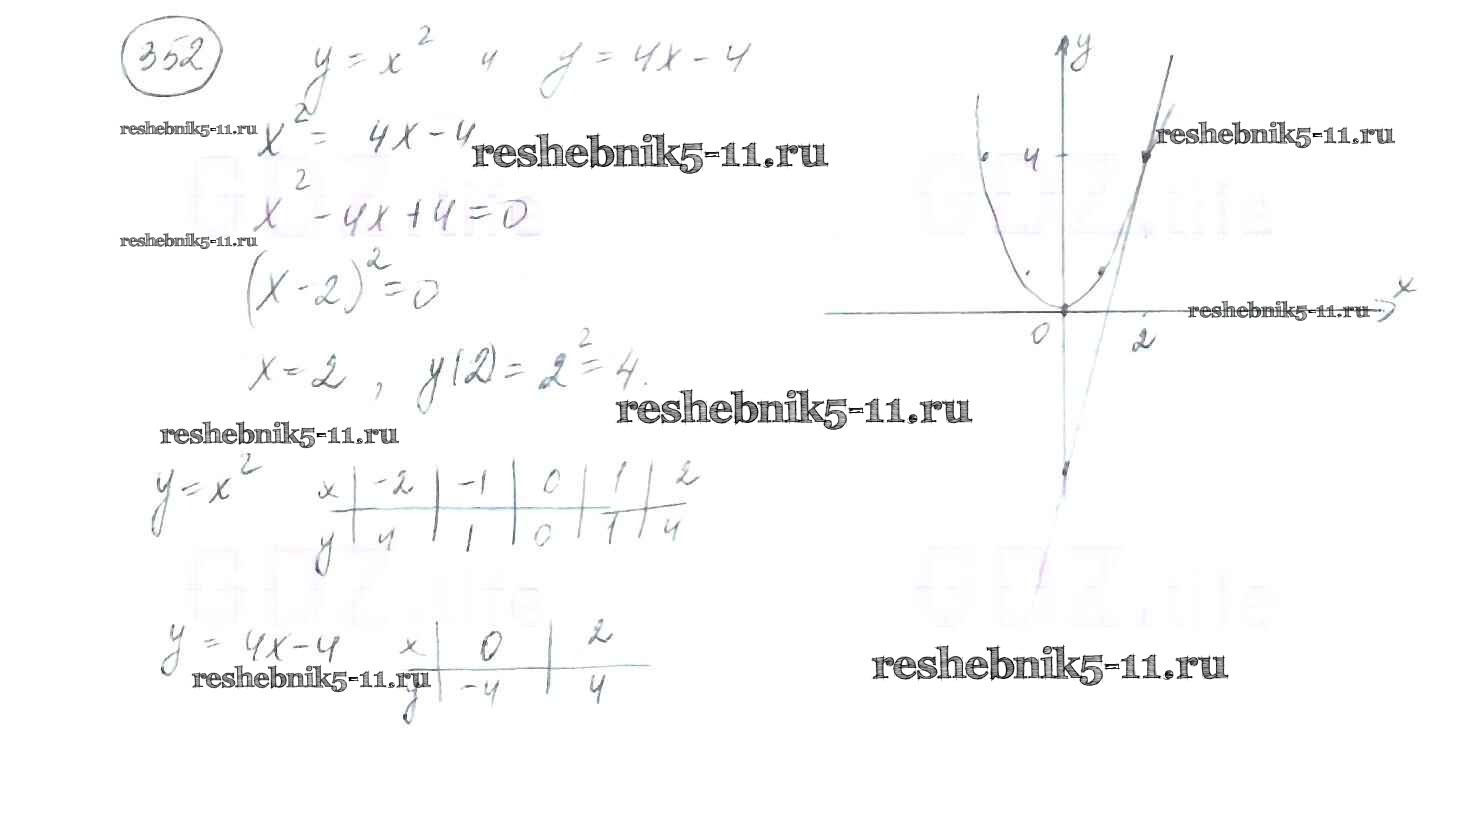 352 y = x² и y = 4x - 4
reshebnik5-11.ru x² = 4x - 4 reshebnik5-11.ru
x² - 4x + 4 = 0
reshebnik5-11.ru
(x - 2)² = 0
x = 2, y(2) = 2² = 4.
reshebnik5-11.ru
reshebnik5-11.ru
y = x² x | -2 | -1 | 0 | 1 | 2
y | 4 | 1 | 0 | 1 | 4
GDZ.life
y = 4x - 4 x | 0 | 2
reshebnik5-11.ru y | -4 | 4
y
reshebnik5-11.ru
4
GDZ.life
x
reshebnik5-11.ru
0 2
GDZ.life
reshebnik5-11.ru
GDZ.life